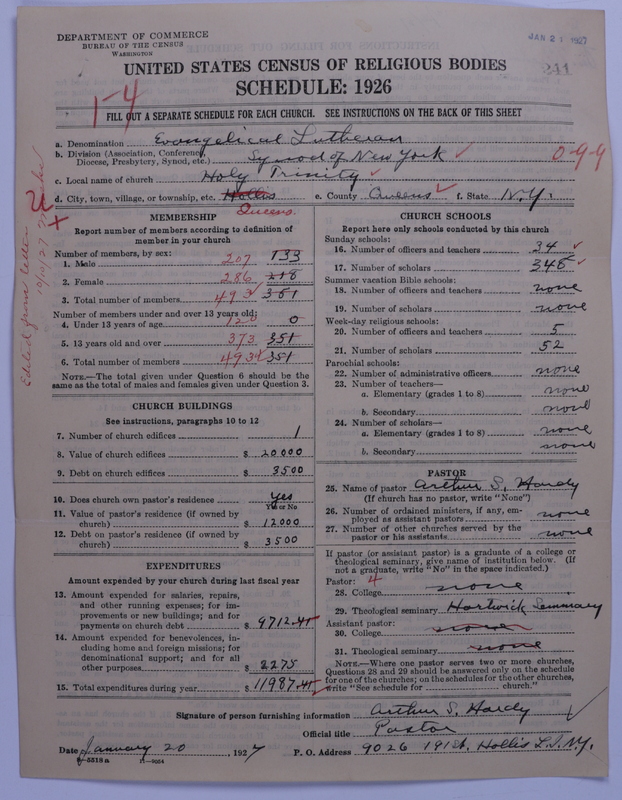 DEPARTMENT OF COMMERCE
BUREAU OF THE CENSUS
WASHINGTON
JAN 21 1927
241
UNITED STATES CENSUS OF RELIGIOUS BODIES
SCHEDULE: 1926
1-4
FILL OUT A SEPARATE SCHEDULE FOR EACH CHURCH. SEE INSTRUCTIONS ON THE BACK OF THIS SHEET
a. Denomination Evangelical Lutheran
b. Division (Association, Conference, Diocese, Presbytery, Synod, etc.) Synod of New York
0-9-9
c. Local name of church Holy Trinity
d. City, town, village, or township, etc. Hollis Queens. e. County Queens f. State N.Y.
MEMBERSHIP
Report number of members according to definition of
member in your church
Number of members, by sex:
1. Male 207 133
2. Female 286 218
3. Total number of members 493 351
Number of members under and over 13 years old:
4. Under 13 years of age 120 0
5. 13 years old and over 373 351
6. Total number of members 493 351
NOTE.—The total given under Question 6 should be the
same as the total of males and females given under Question 3.
CHURCH BUILDINGS
See instructions, paragraphs 10 to 12
7. Number of church edifices 1
8. Value of church edifices $ 20000
9. Debt on church edifices $ 3500
10. Does church own pastor's residence Yes
Yes or No
11. Value of pastor's residence (if owned by
church) $ 12000
12. Debt on pastor's residence (if owned by
church) $ 3500
EXPENDITURES
Amount expended by your church during last fiscal year
13. Amount expended for salaries, repairs,
and other running expenses; for im-
provements or new buildings; and for
payments on church debt $ 9712.45
14. Amount expended for benevolences, in-
cluding home and foreign missions; for
denominational support; and for all
other purposes $ 2275
15. Total expenditures during year $ 11987.45
CHURCH SCHOOLS
Report here only schools conducted by this church
Sunday schools:
16. Number of officers and teachers 34
17. Number of scholars 345
Summer vacation Bible schools:
18. Number of officers and teachers none
19. Number of scholars none
Week-day religious schools:
20. Number of officers and teachers 5
21. Number of scholars 52
Parochial schools:
22. Number of administrative officers none
23. Number of teachers—
a. Elementary (grades 1 to 8) none
b. Secondary none
24. Number of scholars—
a. Elementary (grades 1 to 8) none
b. Secondary none
PASTOR
25. Name of pastor Arthur S. Hardy
(If church has no pastor, write "None")
26. Number of ordained ministers, if any, em-
ployed as assistant pastors none
27. Number of other churches served by the
pastor or his assistants none
If pastor (or assistant pastor) is a graduate of a college or
theological seminary, give name of institution below. (If
not a graduate, write "No" in the space indicated.)
Pastor: 4
28. College none
29. Theological seminary Hartwick Seminary
Assistant pastor:
30. College none
31. Theological seminary none
NOTE.—Where one pastor serves two or more churches,
Questions 28 and 29 should be answered only on the schedule
for one of the churches; on the schedules for the other churches,
write "See schedule for church."
Signature of person furnishing information Arthur S. Hardy
Official title Pastor
Date January 20, 1927 P. O. Address 9026 191 St. Hollis L.I. N.Y.
8-5518a 11-9054